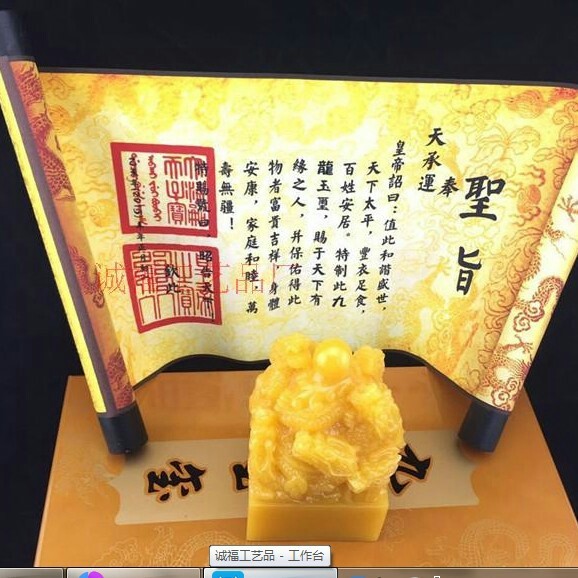 聖旨
奉
天承運
皇帝詔曰：值此和諧盛世，
天下太平，豐衣足食，
百姓安居。特制此九
龍玉璽，賜于天下有
緣之人，并保佑得此
物者富貴吉祥，身體
安康，家庭和睦，萬
壽無疆！
昭告天下
欽此
诚福工艺品
九
宝
诚福工艺品 - 工作台